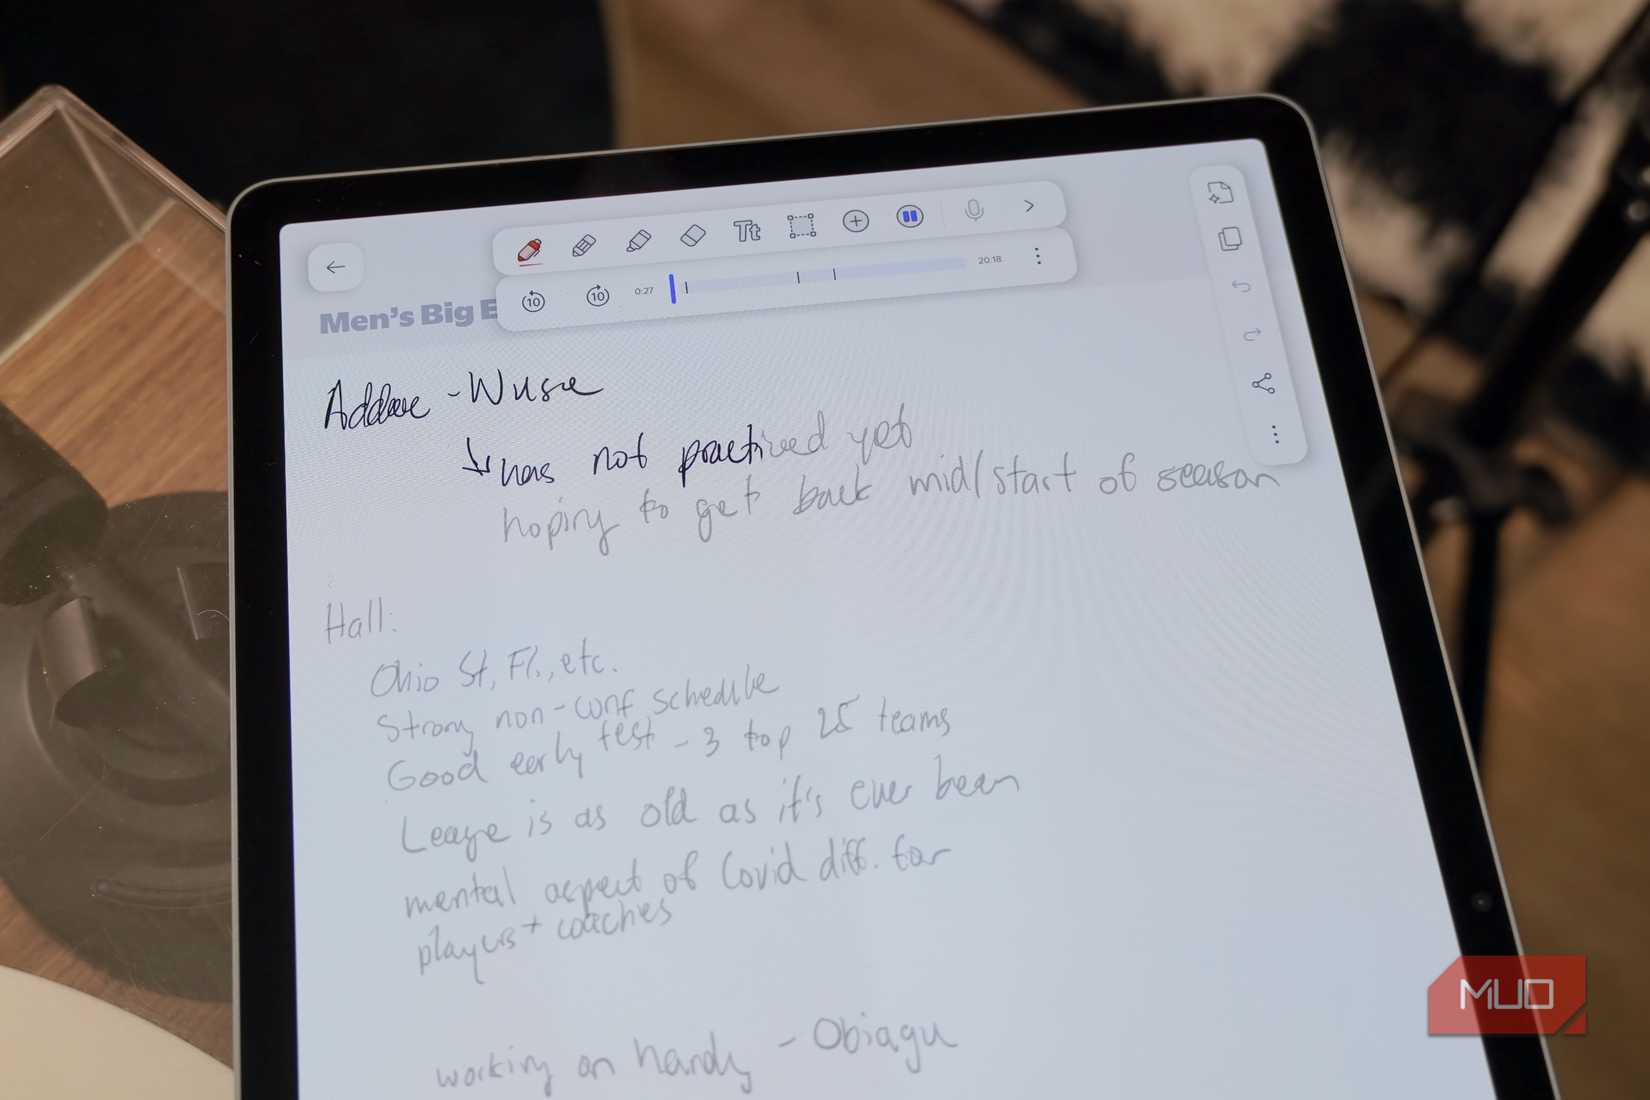 Tt
10
10
0:27
20:18
Men's Big E
Addae - Wusu
↳ has not practiced yet
hoping to get back mid/start of season
Hall:
Ohio St, Fl., etc.
Strong non-conf schedule
Good early test - 3 top 25 teams
League is as old as it's ever been
mental aspect of Covid diff. for
players + coaches
working on handy - Obiagu
MUO